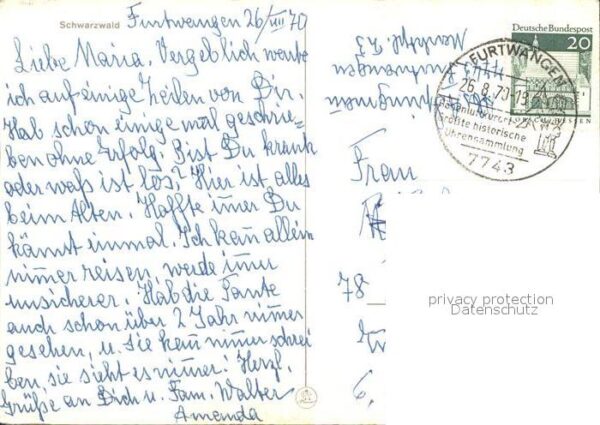 Schwarzwald
Furtwangen 26/VIII 70
Liebe Maria. Vergeblich warte
ich auf einige Zeilen von Dir.
Hab schon einige mal geschrie-
ben ohne Erfolg. Bist Du krank
oder waß ist los? Hier ist alles
beim Alten. Hoffte imer Du
kämst einmal. Ich kan allein
nimer reisen, werde imer
unsicherer. Hab die Tante
auch schon über 2 Jahr nimer
gesehen, u. Sie kan nimer schrei
ben, sie sieht es nimer. Herzl.
Grüße an Dich u. Fam. Walter
Amanda
Deutsche Bundespost
20
FURTWANGEN
26.8.70-13
Größte historische
Uhrensammlung
7743
Frau
78
privacy protection
Datenschutz